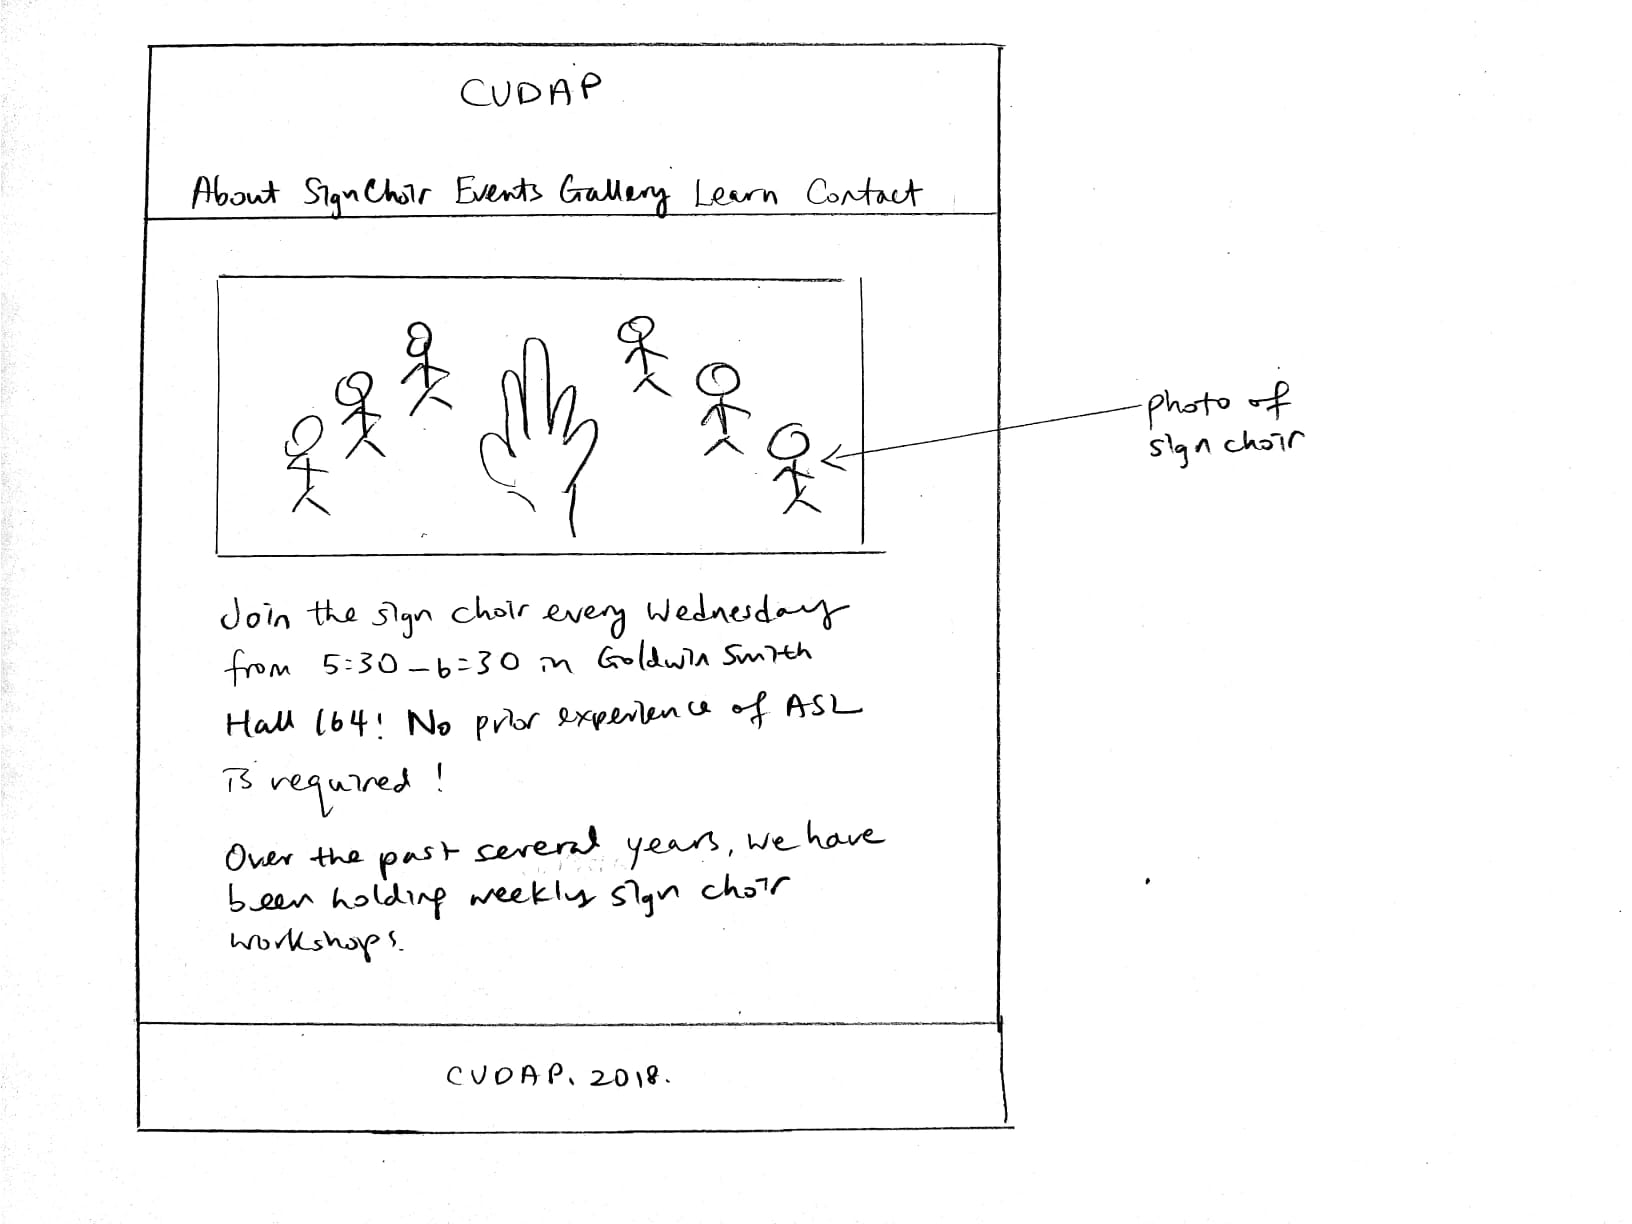 CUDAP
About Sign Choir Events Gallery Learn Contact
photo of
sign choir
Join the sign choir every Wednesday
from 5:30 – 6:30 in Goldwin Smith
Hall 164! No prior experience of ASL
is required!
Over the past several years, we have
been holding weekly sign choir
workshops.
CUDAP. 2018.